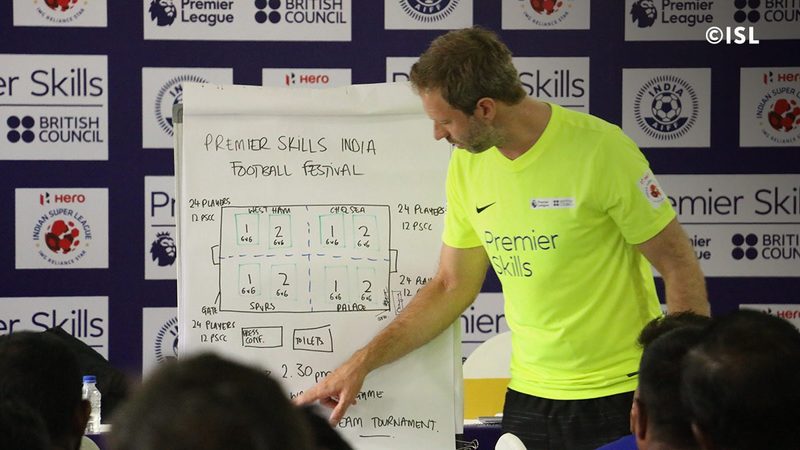 ©ISL
Premier League
BRITISH COUNCIL
Premier League
BRITISH COUNCIL
HERO
HERO
INDIA
AIFF
Premier Skills
BRITISH COUNCIL
Skills
HERO
Indian Super League
IMG RELIANCE STAR
Premier Skills
BRITISH COUNCIL
Premier Skills
PREMIER SKILLS INDIA
FOOTBALL FESTIVAL
24 PLAYERS
12 PSCC
WEST HAM
CHELSEA
24 PLAYERS
12 PSCC
1 2 1 2
6v6 6v6 6v6 6v6
24 PLAYERS
12 PSCC
1 2 1 2
6v6 6v6 6v6 6v6
GATE
SPURS
PALACE
24 PLAYERS
12 PSCC
PRESS CONF.
TOILETS
2.30pm
GAME
TEAM TOURNAMENT.
Premier
Skills